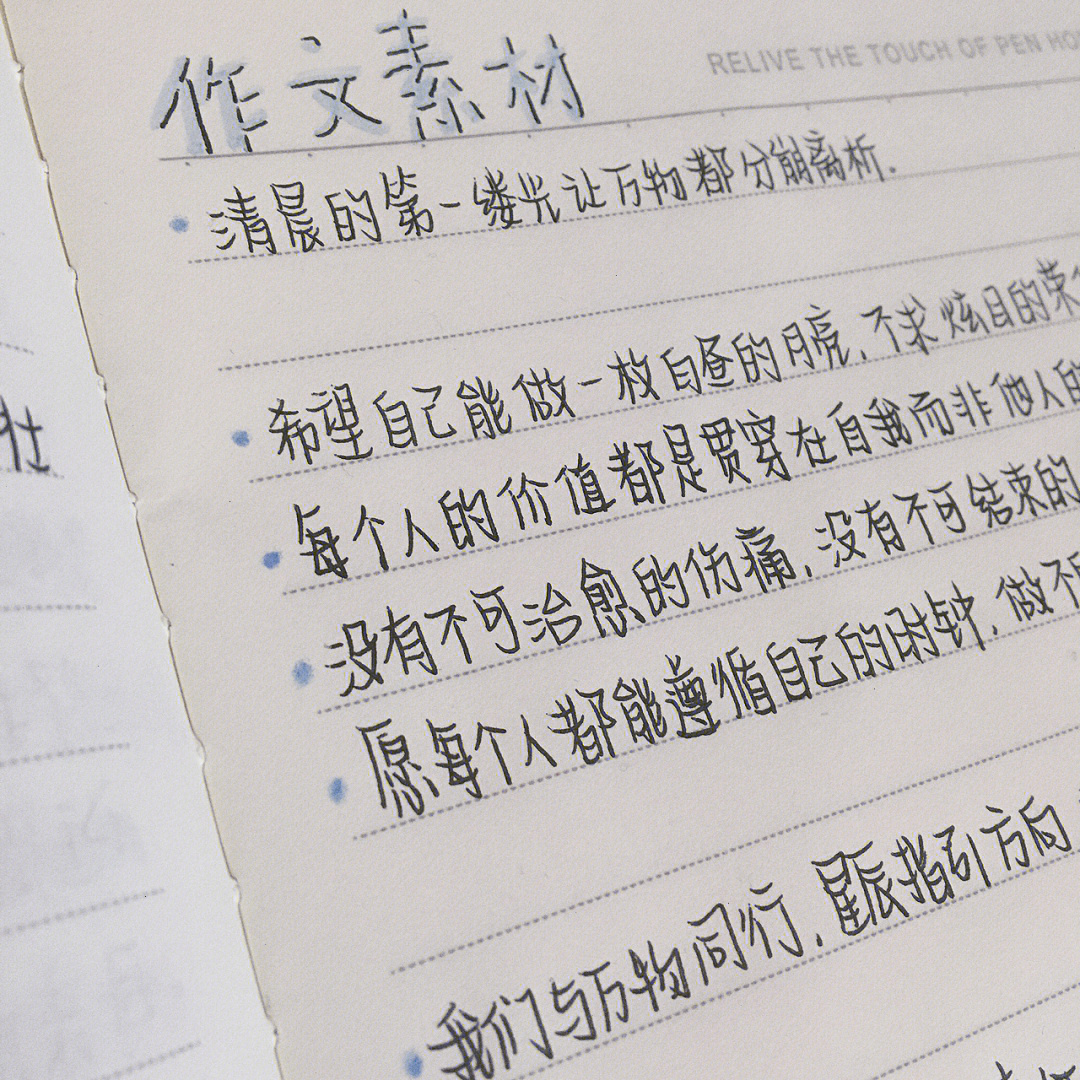 作文素材
RELIVE THE TOUCH OF PEN
清晨的第一缕光让万物都分崩离析.
希望自己能做一枚白昼的月亮,不求炫目的荣
每个人的价值都是贯穿在自我而非他人的
没有不可治愈的伤痛,没有不可结束的
愿每个人都能遵循自己的时钟,做不
我们与万物同行,星辰指引方向